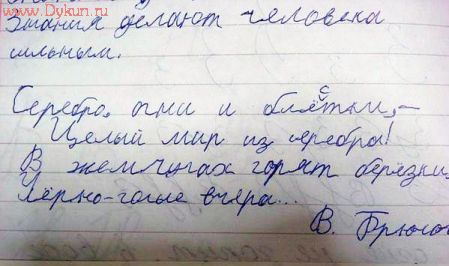 www.Dykun.ru
Знания делают человека
сильным.
Серебро, огни и блёстки,–
Целый мир из серебра!
В жемчугах горят берёзки,
Чёрно-голые вчера...
В. Брюсов